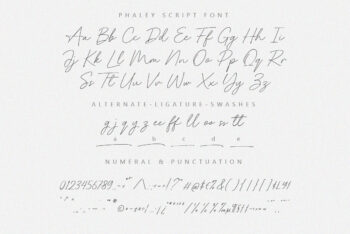 PHALEY SCRIPT FONT
Aa Bb Cc Dd Ee Ff Gg Hh Ii
Jj Kk Ll Mm Nn Oo Pp Qq Rr
Ss Tt Uu Vv Ww Xx Yy Zz
ALTERNATE-LIGATURE-SWASHES
g j q y z ee ff ll oo ss tt
a b c d e
NUMERAL & PUNCTUATION
0123456789